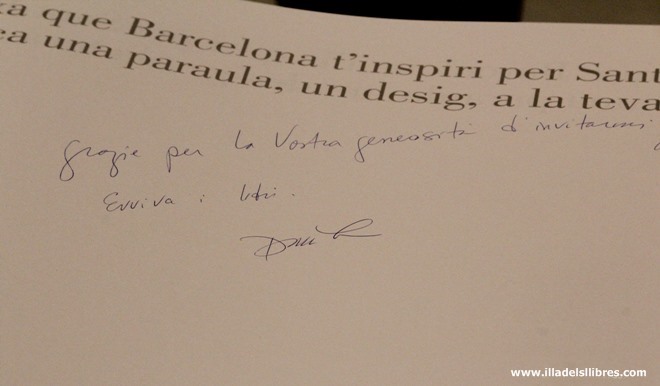 xa que Barcelona t'inspiri per Sant
ca una paraula, un desig, a la teva
Grazie per la Vostra generosità d'invitarmi
Evviva i libri.
www.illadelsllibres.com